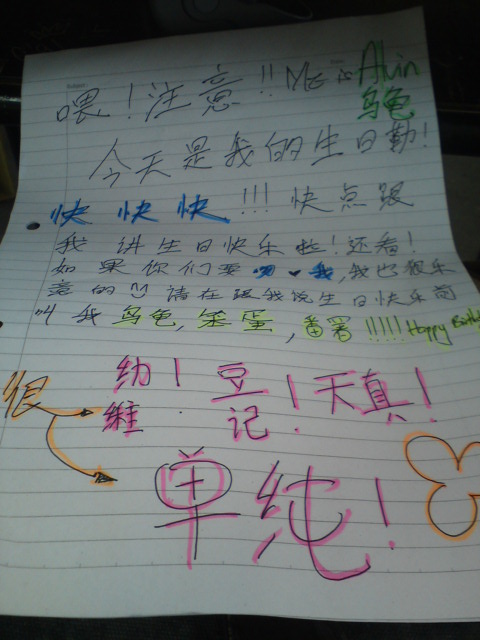 喂！注意!! Me is Alvin
乌龟
今天是我的生日勒!
快 快 快 !!! 快点跟
我 讲生日快乐 啦!还看!
如果你们要 我,我也很乐
意的 请在跟我说生日快乐前
叫我 乌龟, 笨蛋, 番署 !!!!! Happy Birth
很 幼！豆！天真！
稚 记
单纯！